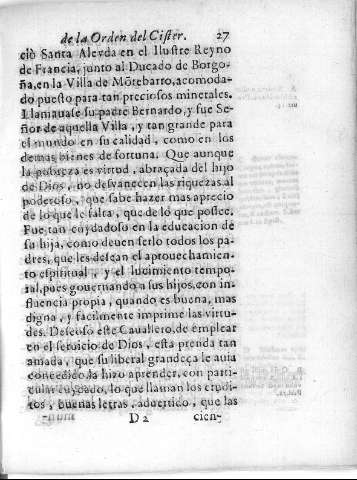 de la Orden del Cister. 27
ciò Santa Aleyda en el Ilustre Reyno
de Francia, junto al Ducado de Borgo-
ña, en la Villa de Mõtebarro, acomoda-
do puesto para tan preciosos minerales.
Llamauase su padre Bernardo, y fue Se-
ñor de aquella Villa, y tan grande para
el mundo en su calidad, como en los
demas bienes de fortuna. Que aunque
la pobreza es virtud, abraçada del hijo
de Dios, no desvanecen las riquezas al
poderoso, que sabe hazer mas aprecio
de lo que le falta, que de lo que possee.
Fue tan cuydadoso en la educacion de
su hija, como deuen serlo todos los pa-
dres, que les desean el aprouechamien-
to espiritual, y el lucimiento tempo-
ral, pues gouernando a sus hijos, con in-
fluencia propia, quando es buena, mas
digna, y facilmente imprime las virtu-
des. Deseoso este Cauallero, de emplear
en el seruicio de Dios, esta prenda tan
amada, que su liberal grandeça le auia
concedido, la hizo aprender, con parti-
cular cuydado, lo que llaman los erudi-
tos, buenas letras, aduertido, que las
D 2 cien-